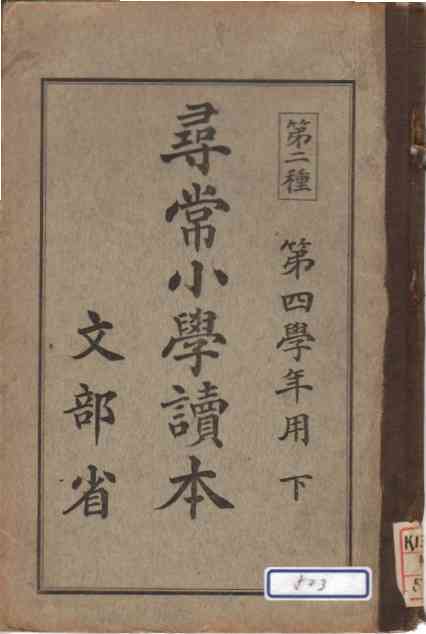 第二種
第四學年用 下
尋常小學讀本
文部省